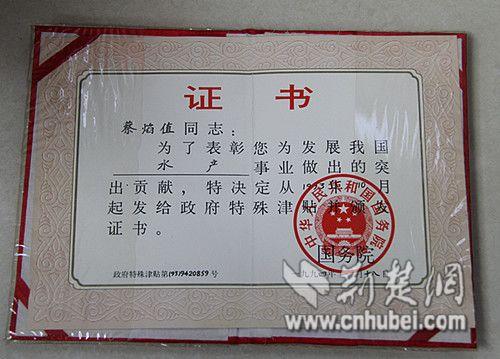 证书
蔡焰值同志：
为了表彰您为发展我国
水产事业做出的突
出贡献，特决定从一九九三年十月
起发给政府特殊津贴并颁发
证书。
中华人民共和国国务院
国务院
政府特殊津贴第(93)9420859号
荆楚网
www.cnhubei.com